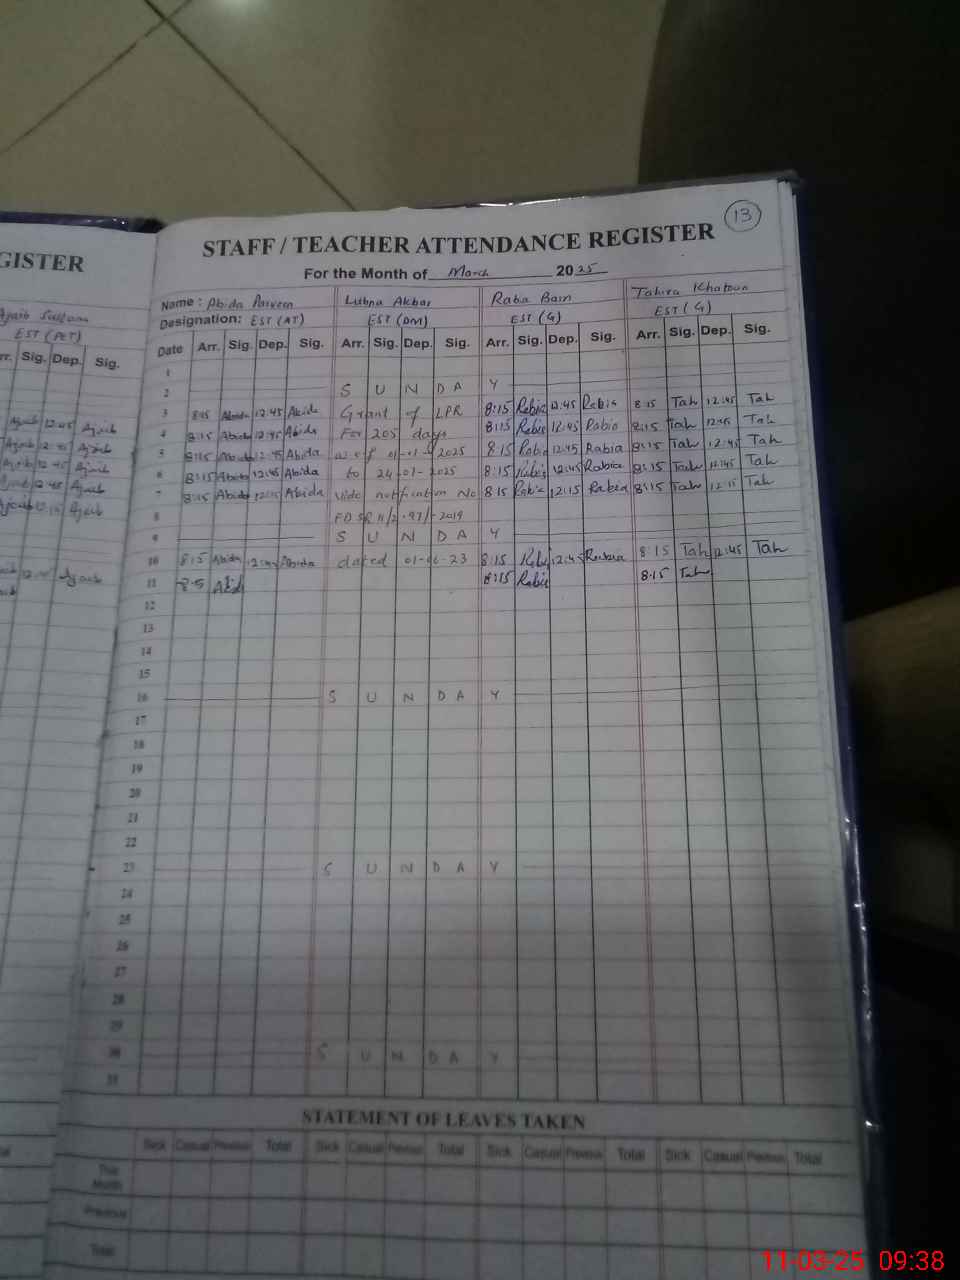 13
GISTER
STAFF / TEACHER ATTENDANCE REGISTER
For the Month of March 2025
Ajaib Sultan
EST (PET)
rr. Sig. Dep. Sig.
Name : Abida Parveen Lubna Akbar Raba Bam Tahira Khatoun
Designation: EST (AT) EST (DM) EST (G) EST (G)
Date Arr. Sig. Dep. Sig. Arr. Sig. Dep. Sig. Arr. Sig. Dep. Sig. Arr. Sig. Dep. Sig.
1
2 S U N D A Y
3 8:15 Abida 12:45 Abida Grant of LPR 8:15 Rabia 12:45 Rabia 8:15 Tah 12:45 Tah
4 8:15 Abida 12:45 Abida For 205 days 8:15 Rabia 12:45 Rabia 8:15 Tah 12:45 Tah
5 8:15 Abida 12:45 Abida w.e.f 01-01- 2025 8:15 Rabia 12:45 Rabia 8:15 Tah 12:45 Tah
6 8:15 Abida 12:45 Abida to 24-01-2025 8:15 Rabia 12:45 Rabia 8:15 Tah 12:45 Tah
7 8:15 Abida 12:15 Abida vide notification No 8:15 Rabia 12:15 Rabia 8:15 Tah 12:15 Tah
8 FD SR 11/2-97/-2019
9 S U N D A Y
10 8:15 Abida 12:45 Abida dated 01-06-23 8:15 Rabi 12:45 Rabia 8:15 Tah 12:45 Tah
11 8:5 Abid 8:15 Rabia 8:15 Tah
12
13
14
15
16 S U N D A Y
17
18
19
20
21
22
23 S U N D A Y
24
25
26
27
28
29
30 S U N D A Y
31
STATEMENT OF LEAVES TAKEN
Sick Casual Previous Total Sick Casual Previous Total Sick Casual Previous Total Sick Casual Previous Total
This Month
Previous
Total
11-03-25 09:38